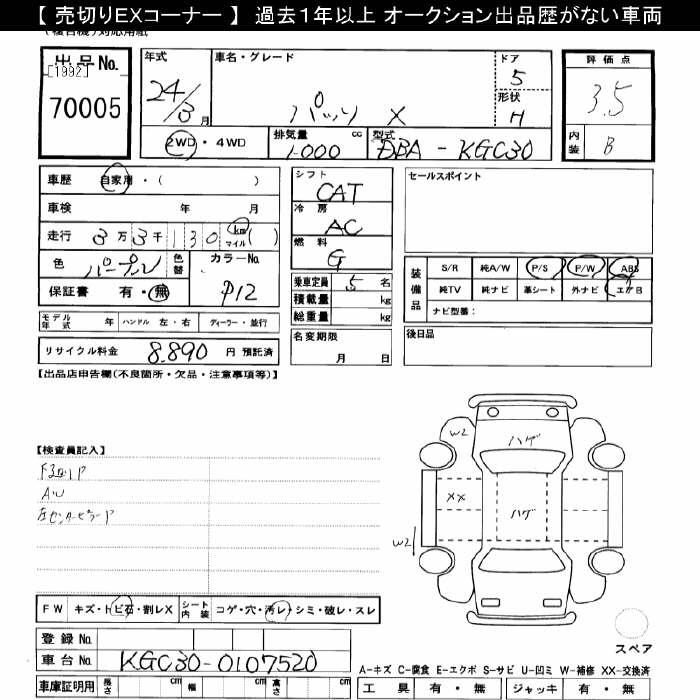 【 売切りEXコーナー 】 過去１年以上 オークション出品歴がない車両
出品No.
[1992]
70005
年式
24/3月
車名・グレード
パッソ X
ドア
5
形状
H
評価点
3.5
内装
B
2WD・4WD
排気量 cc
1000
型式
DBA - KGC30
車歴 自家用・( )
車検 年 月
走行 3万3千130 km マイル ( )
色 パープル 色替 カラーNo.
P12
保証書 有・無
シフト
CAT
冷房
AC
燃料
G
乗車定員 5 名
積載量 kg
総重量 kg
名変期限
月 日
セールスポイント
装備品
S/R 純A/W P/S P/W ABS
純TV 純ナビ 革シート 外ナビ エアB
ナビ型番:
後日品
モデル年式 年 ハンドル 左・右 ディーラー・並行
リサイクル料金 8,890 円 預託済
【出品店申告欄(不良箇所・欠品・注意事項等)】
【検査員記入】
W2
ハゲ
XX
ハゲ
W2
FW キズ・トビ石・割レX シート内装 コゲ・穴・汚レ・シミ・破レ・スレ
登録No.
車台No. KGC30-0107520
車庫証明用 長さ cm 幅 cm 高さ cm
スペア
A-キズ C-腐食 E-エクボ S-サビ U-凹ミ W-補修 XX-交換済
工具 有・無 ジャッキ 有・無